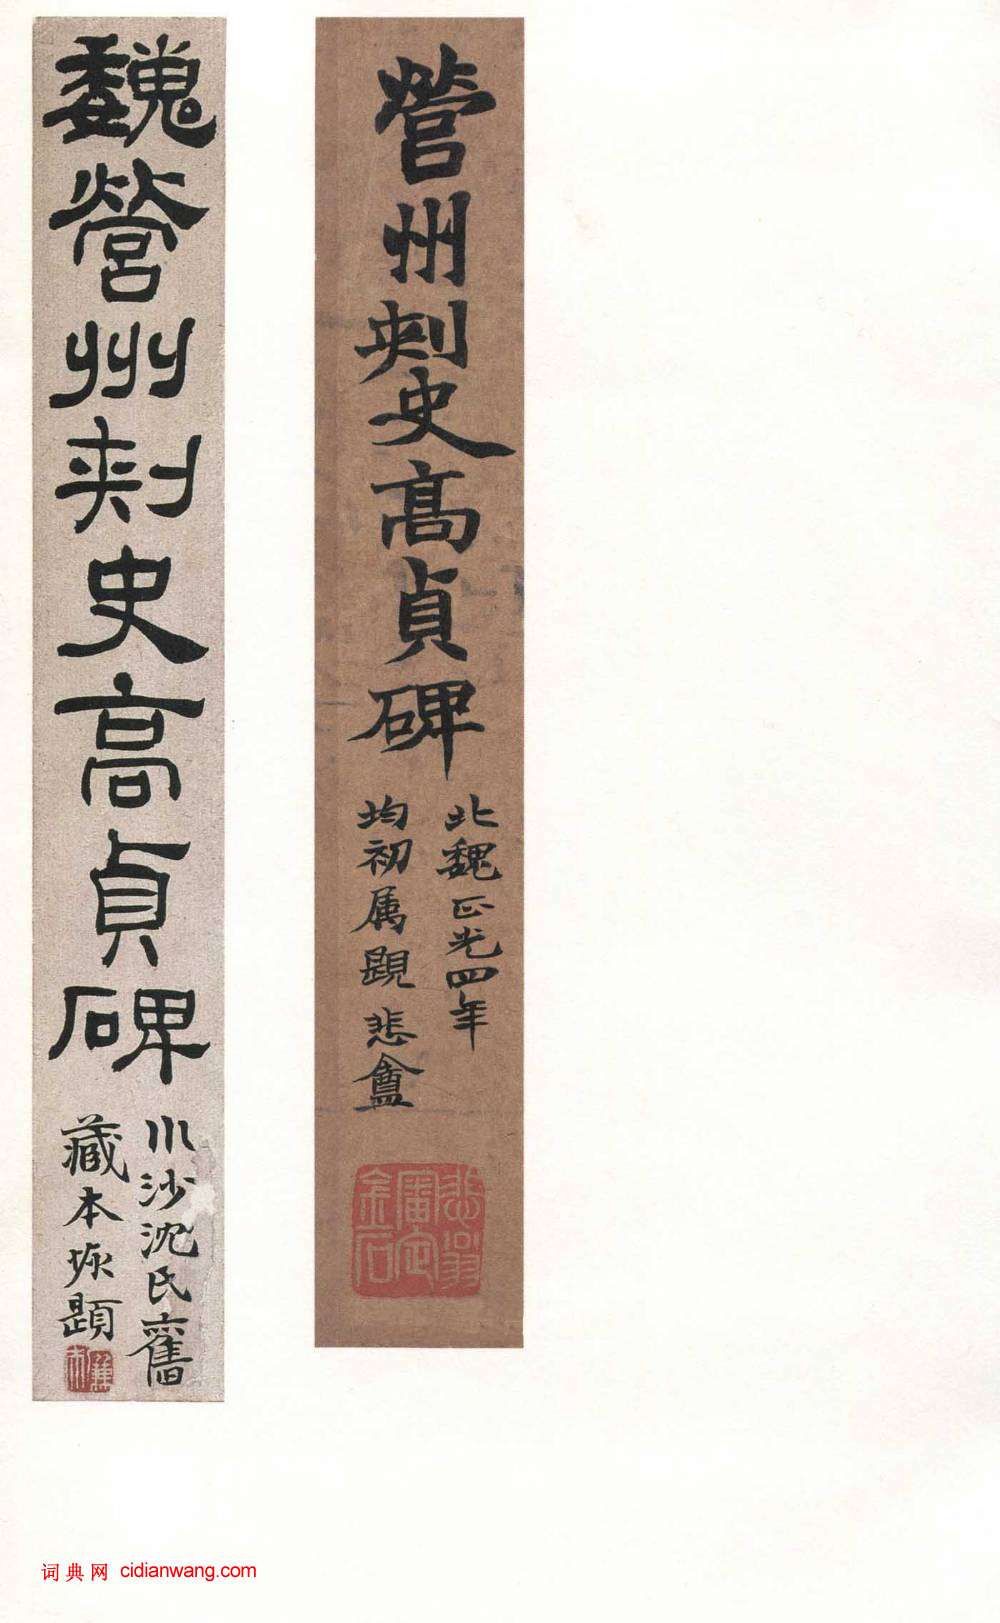 營州刺史高貞碑
北魏正光四年
均初属題 悲盦
魏營州刺史高貞碑
川沙沈氏舊
藏本 題
词典网 cidianwang.com